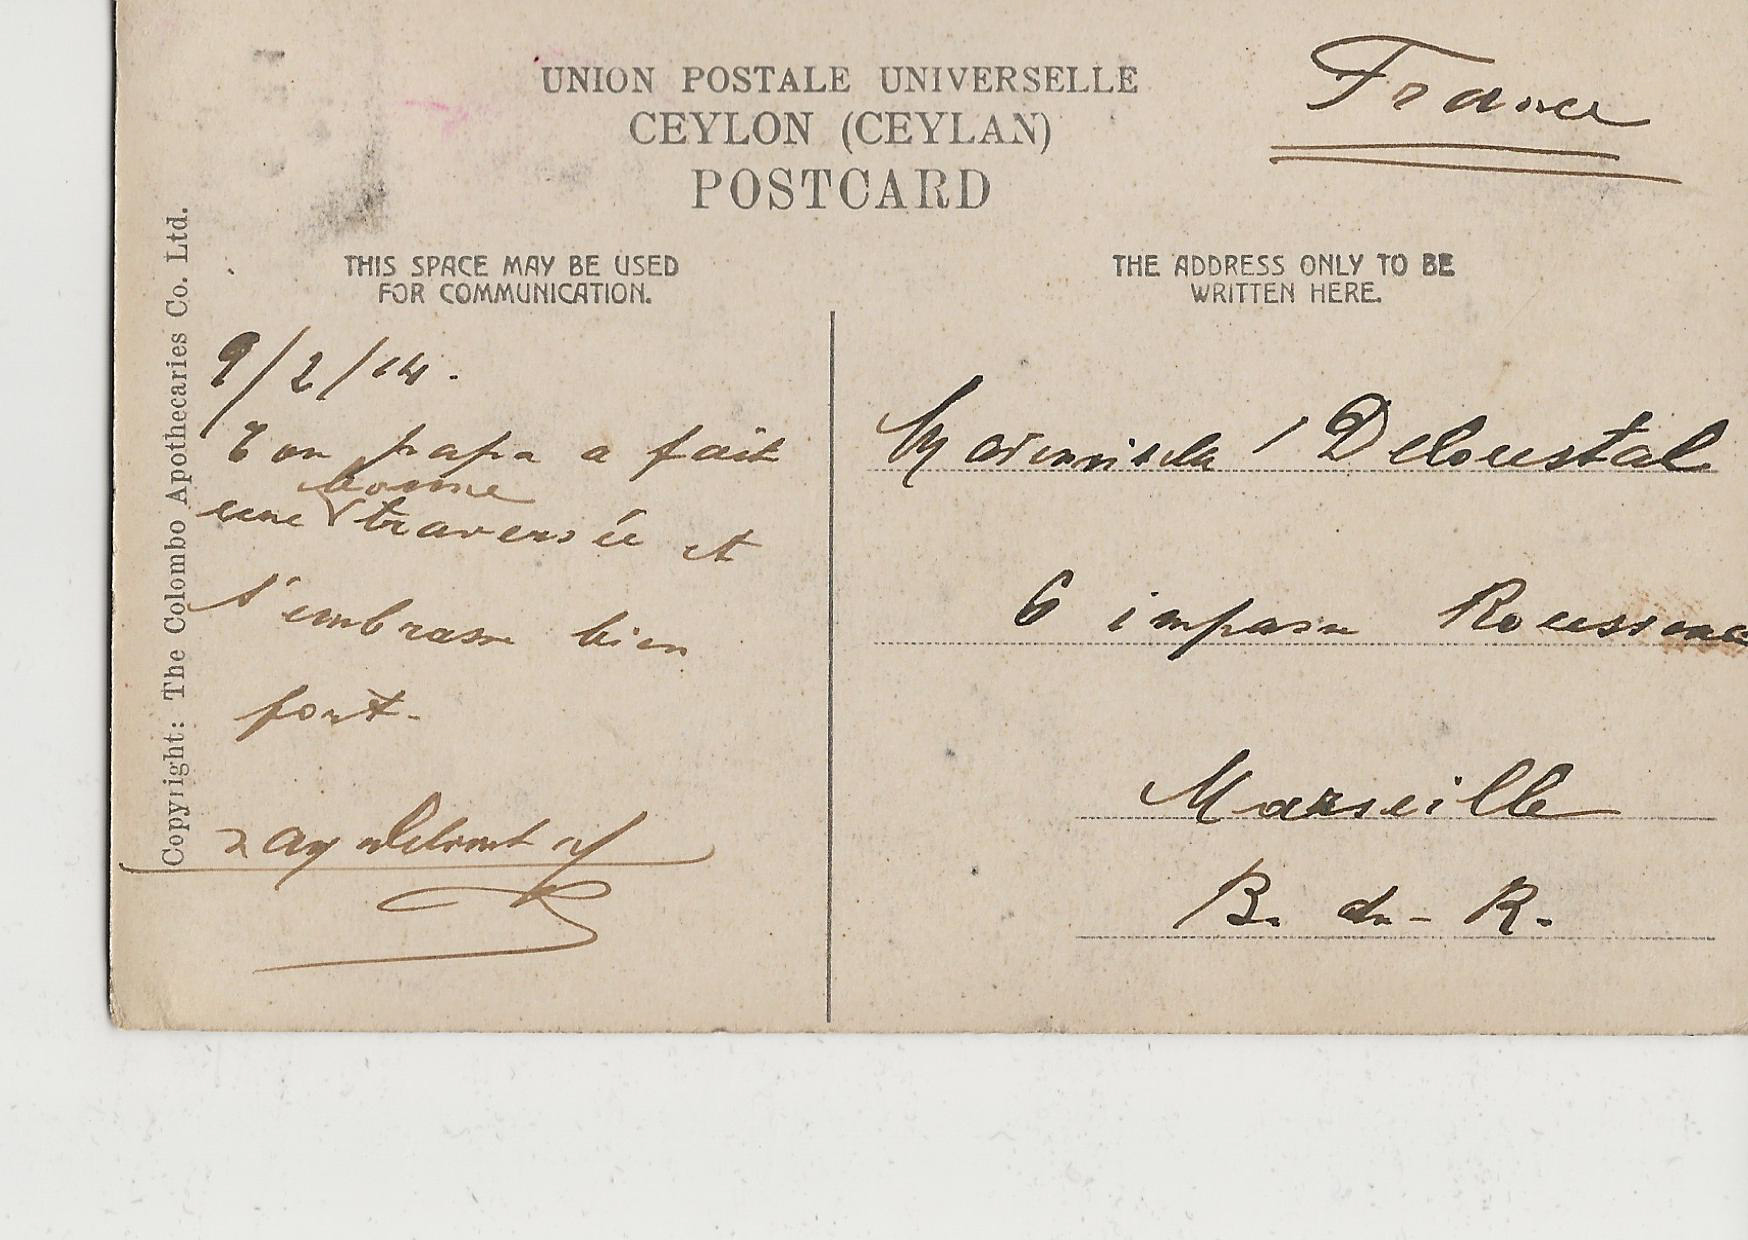 UNION POSTALE UNIVERSELLE
CEYLON (CEYLAN)
POSTCARD
France
THIS SPACE MAY BE USED
FOR COMMUNICATION.
THE ADDRESS ONLY TO BE
WRITTEN HERE.
Copyright: The Colombo Apothecaries Co. Ltd.
9/2/14.
Ton papa a fait
bonne
une traversée et
t'embrasse bien
fort.
Mademoiselle Deloustal
6 impasse
Marseille
B. du - R.